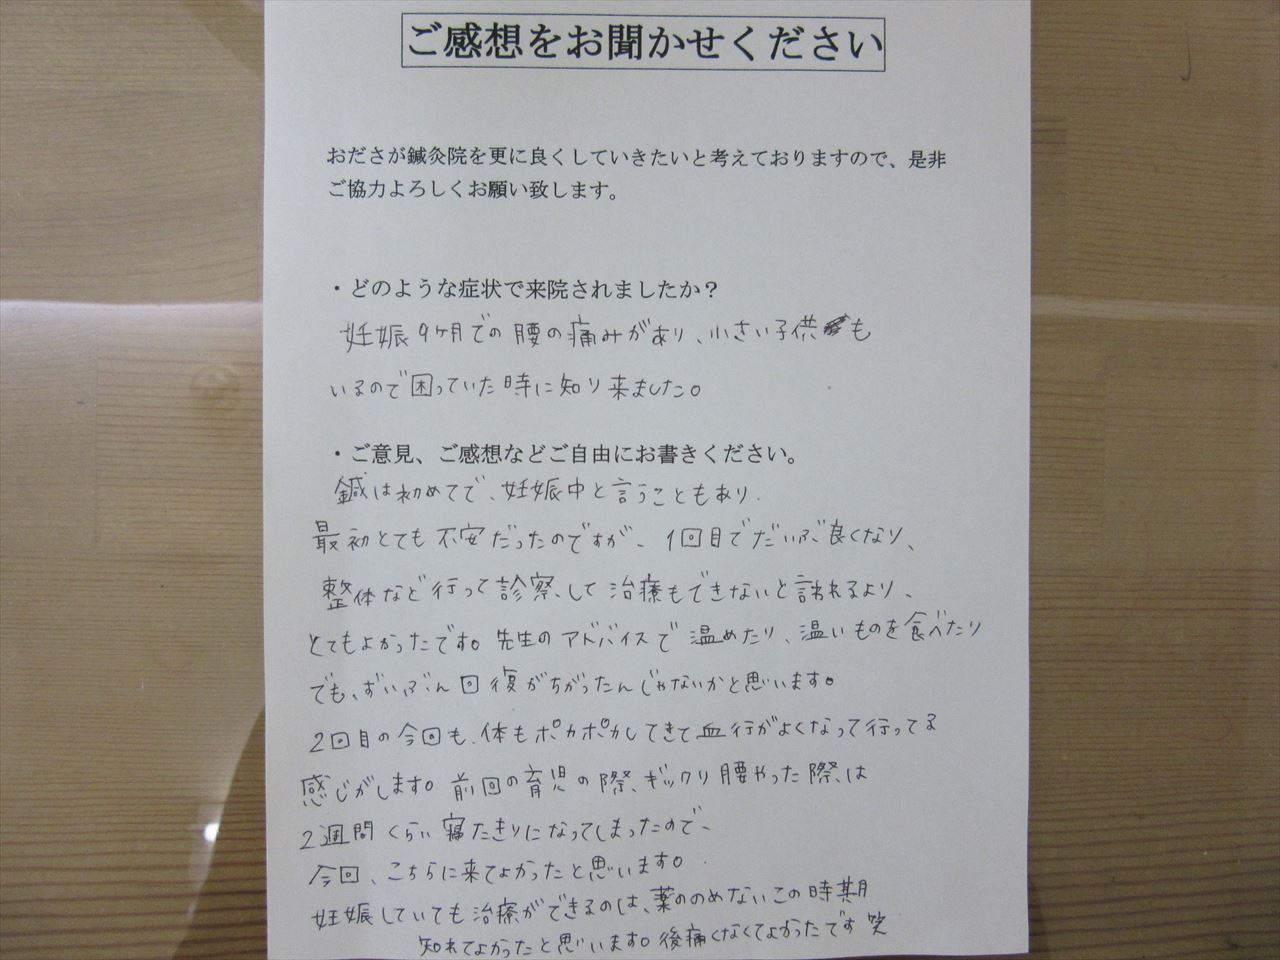 ご感想をお聞かせください
おださが鍼灸院を更に良くしていきたいと考えておりますので、是非
ご協力よろしくお願い致します。
・どのような症状で来院されましたか？
妊娠9ヶ月での腰の痛みがあり、小さい子供も
いるので困っていた時に知り来ました。
・ご意見、ご感想などご自由にお書きください。
鍼は初めてで、妊娠中と言うこともあり、
最初とても不安だったのですが、1回目でだいぶ良くなり、
整体など行って診察して治療もできないと言われるより、
とてもよかったです。先生のアドバイスで温めたり、温いものを食べたり
でも、ずいぶん回復がちがったんじゃないかと思います。
2回目の今回も、体もポカポカしてきて血行がよくなって行ってる
感じがします。前回の育児の際、ギックリ腰やった際は
2週間くらい寝たきりになってしまったので、
今回、こちらに来てよかったと思います。
妊娠していても治療ができるのは、薬ののめないこの時期
知れてよかったと思います。後痛くなくてよかったです笑